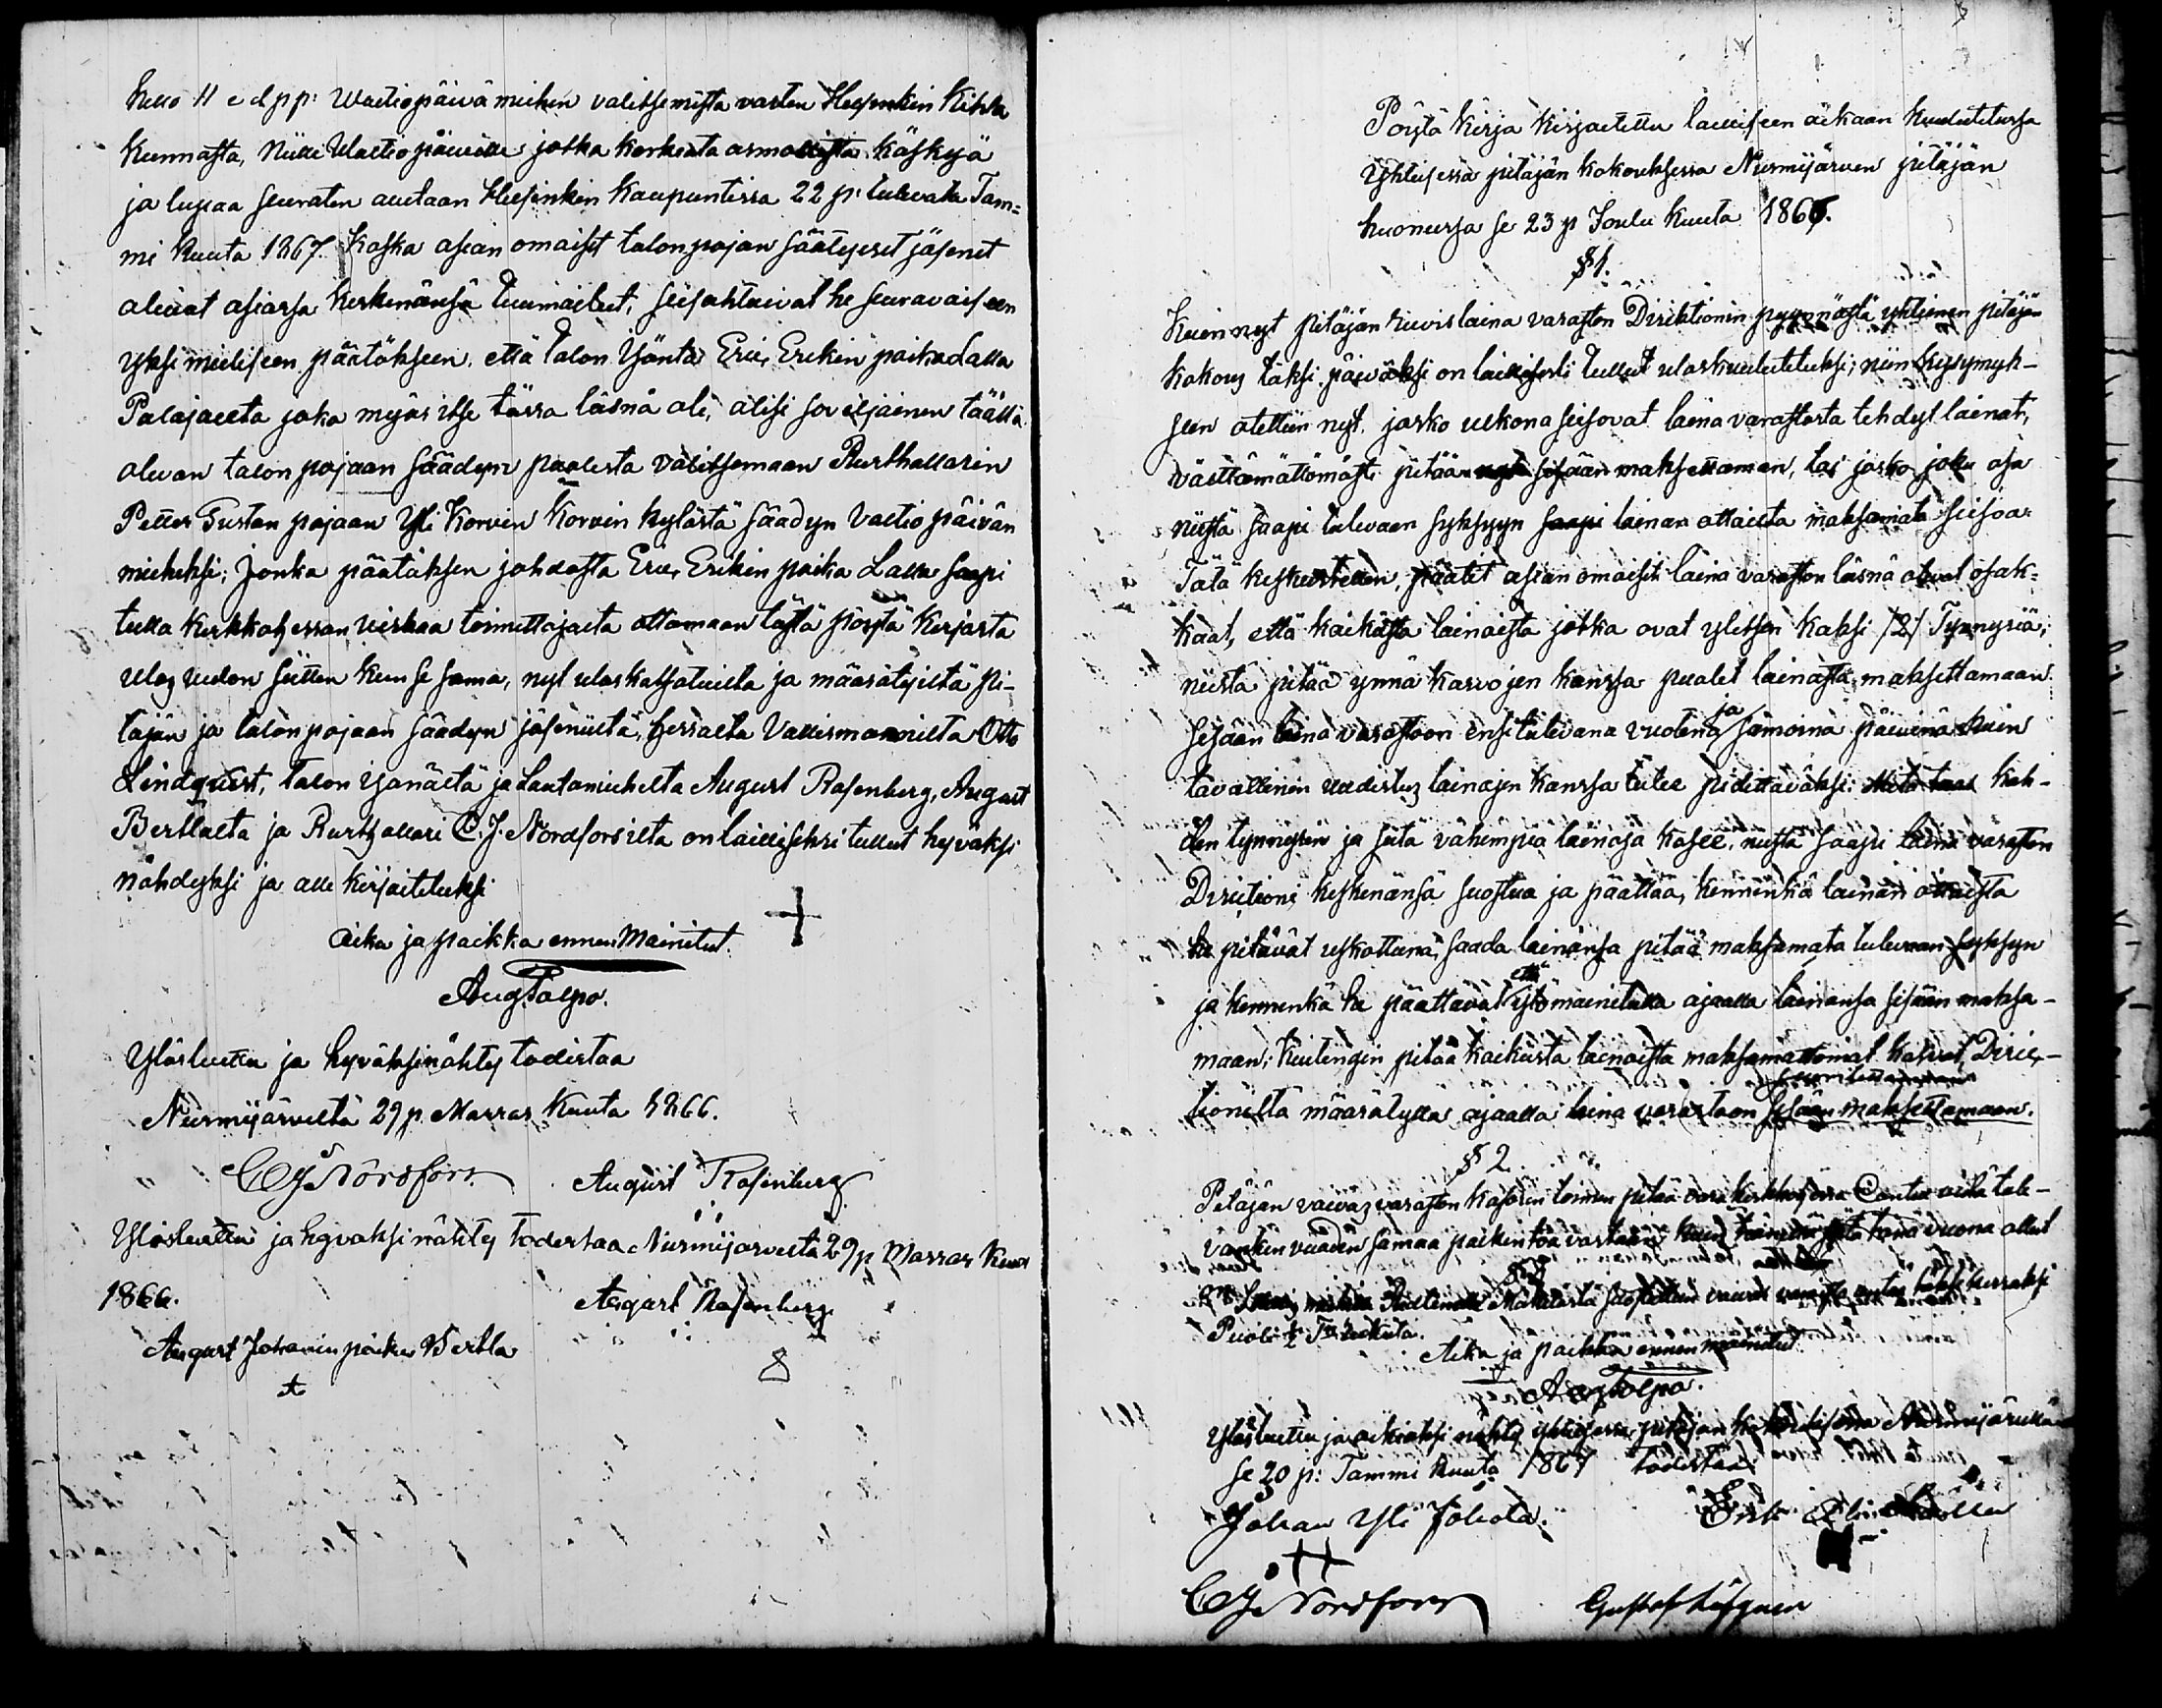 kello 11 e d p p: Waltiopäivä miehen valitsemista varten Helsinkin Kihla
Kunnasta, Niille Waltiopäiville jotka korkeata armollista käskyä
ja lupaa seuraten auetaan Helsinkin Kaupuntissa 22 p: tulevata Tam=
mi kuuta 1867. Koska asian omaiset talonpojan säätyiset jäsenet
olivat asiassa keskenänsä tuumailleet, seisahtuivat he seuravaiseen
yksi mieliseen päätökseen, että talon Isäntä Eric, Erikin poika Lalla
Palajaelta joka myös itse tässä läsnä oli, olisi soveljainen täällä
olevan talonpojaan säädyn puolesta valitsemaan Rusthollarin
Petter Gustav pojaan Yli Korvin Korvin kylästä säädyn Valtiopäivän
mieheksi; Jonka päätöksen johdosta Eric, Erikin poika Lalla saapi
tulla Kirkkoherran virkaa toimittajaita ottamaan tästä pöytä Kirjasta
ulos vedon siitten kuin se sama, nyt uloskatsotuilta ja määrätyiltä pi-
täjän ja talonpojaan säädyn jäseniltä, herralta Vallesmannilta Otto
Lindqvist, talon isänältä ja Lautamieheltä August Rosenberg, August
Berklalta ja Rusthollari C. J. Nordforsilta on laillisehsi tullut hyväksi
nähdyksi ja alle kirjoitetuksi
Aika ja paikka ennen Mainitut.
Aug Talpo.
Ylösluettu ja hyväksinähty todistaa
Nurmijärveltä 29 p. Marras Kuuta 1866.
C J Nordfors August Rosenberg
Ylösluettu ja hyvaksi nähty todistaa Nurmijarvelta 29 p Marras Kuu
1866. August Rosenberg
August Johanin poika Bertla
Pöytä kirja kirjoitettu lailliseen aikaan kuulutetussa
Yhteisessä pitäjän kokouksessa Nurmijärven pitäjän
huoneessa se 23 p Joulu kuuta 1866.
§ 1.
Kuin nyt pitäjän kuvis laina varaston Direktionin pyynnöstä yhteinen pitäjän
kokous täksi päiväksi on laillisesti tullut uloskuulutetuksi; niin kysymyk-
seen otettiin nyt, josko ulkona seisovat laina varastosta tehdyt lainat,
välttämättömästi pitää nyt sisään maksettaman, tai josko joku osa
niistä saapi tulevaan syksyyn saapi lainan ottailta maksamata seisoa.
Tätä keskustellen, päätit asian omaiset laina varaston läsnä olevat osak=
kaat, että kaikista lainoista jotka ovat ylitsen kaksi /2/ Tynnyriä;
niistä pitää ynnä kasvojen kanssa puolet lainasta maksettamaan
sisään laina varastoon ensitulevana vuotena ja samoina päivinä kuin
tavallinen uudistus lainojen kanssa tulee pidettäväksi. Mitä taas kah-
den tynnyrin ja siitä vähempiä lainoja koskee, niistä saapi laina varaston
Directioni keskenänsä suostua ja päättää, kenninkä lainan ottaista
he pitävät uskottuina, saada lainansa pitää maksamata tulevaan syksyn
ja kenninkä he päättävät että ylös mainitulla ajaalla lainansa sisään maksa-
maan; kuitengin pitää kaikista lainoista maksamattomat kasvut, Direc-
tionilta määrätyllä ajaalla laina varastoon sisään maksettamaan.
§ 2.
Pitäjän vaivas varaston kasörin toimen pitää
vankin vuoden samaa palkintoa vastaan kuin tänä vuona ollut
Puoli ½ Tn
Aika ja paikka ennen mainitut
Aug Talpo.
Ylösluettu ja oikiaksi nähty yhteisessä pitäjän kokouksessa Nurmijärvellä
se 20 p: Tammi kuuta 1867 todistaa:
Johan Yli Johola. Erik
C J Nordfors Gustaf Löfgren